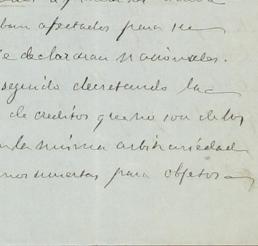 ban afectados para su
se declaran nacionales.
seguido decretando la
de creditos que no son de los
la misma arbitrariedad
manos muertas para objetos